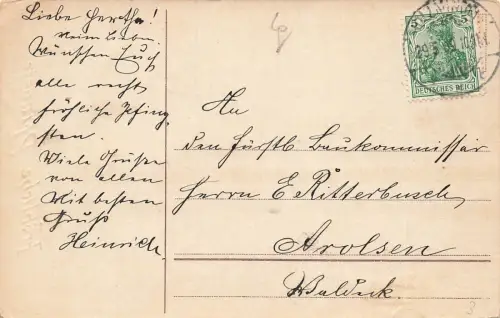 Liebe Hertha!
Meine Lieben.
Wünschen Euch
alle recht
fröhliche Pfing-
sten.
Viele Grüße
von allen
Mit besten
Gruß
Heinrich
5
DEUTSCHES REICH
An
den Fürstl. Baukommissär
Herrn E. Ritterbusch,
Arolsen
Waldeck.